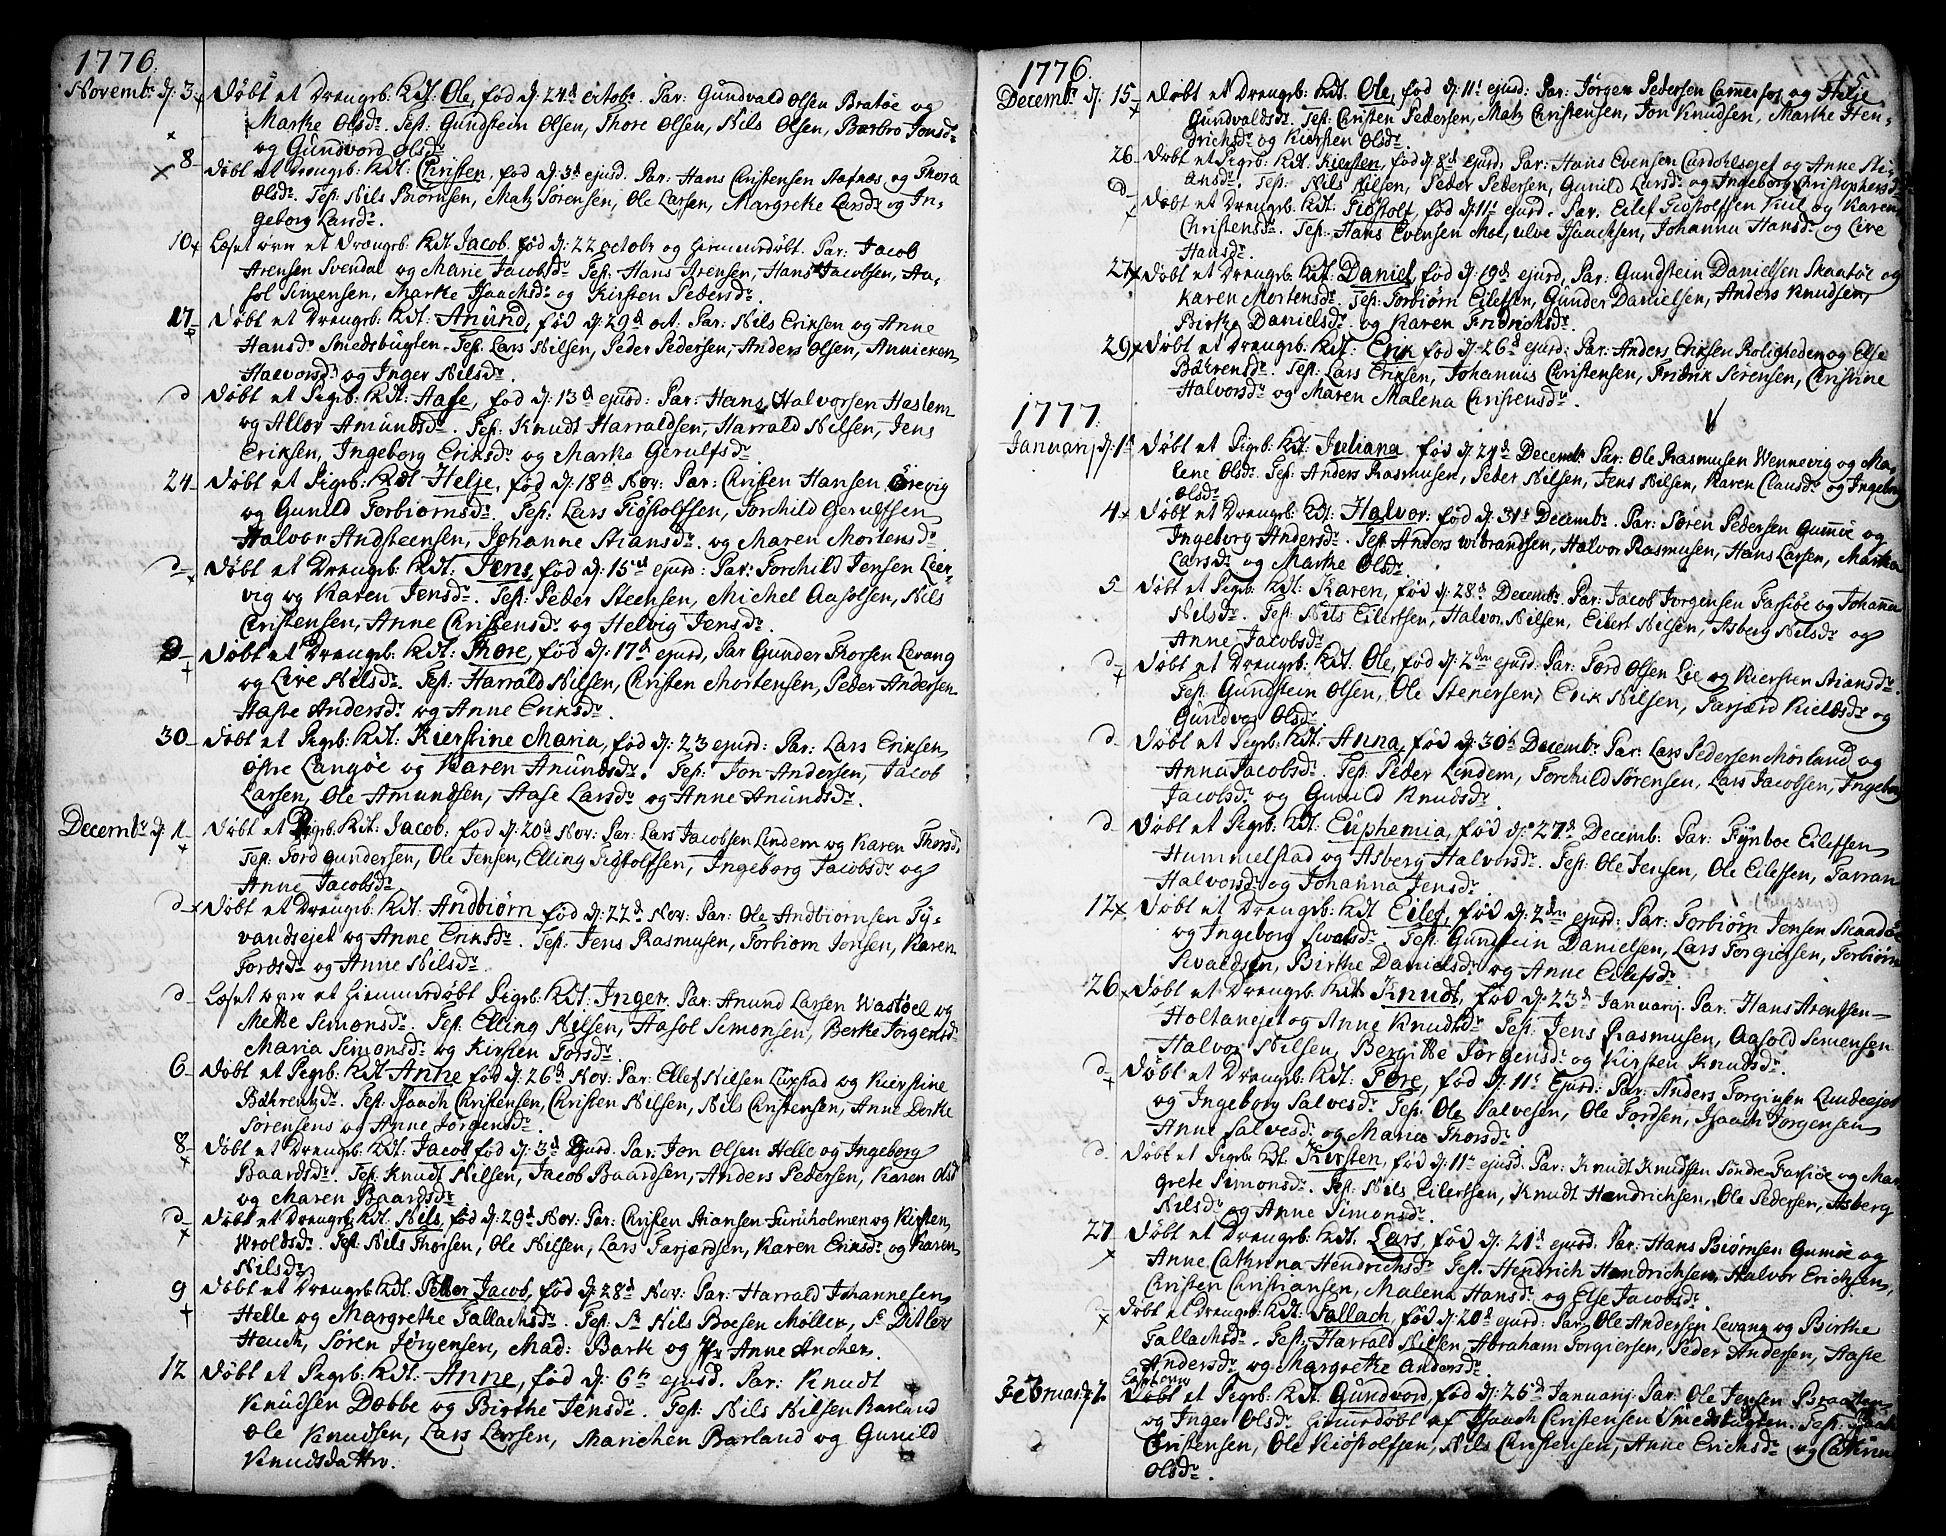 1776.
Novembr d: 3. Døbt et Drengeb: kdt. Ole, fød d: 24d octobr. Par: Gundvald Olsen Bratøe og
Marke Olsdr. Test: Gundstein Olsen, Thore Olsen, Nils Olsen, Barbro Jonsdr
og Gundvord Olsdr
8 Døbt et Drengeb: kdt. Christen, fød d: 3d ejusd. Par: Hans Christensen Aafnæs og Thora
Olsdr. Test: Nils Biørnsen, Matz Sørensen, Ole Larsen, Margrete Larsdr og In-
geborg Larsdr.
10 Læset over et Drengeb: kdt Jacob fød d: 22 octobr og hiemmedøbt. Par: Jacob
Arensen Svendal og Marie Jacobsdr Test: Hans Arensen, Hans Jacobsen, Aa-
sol Simensen, Marke Isaachsdr og Kirsten Pedersdr.
17 Døbt et Drengeb: kdt: Anund, fød d: 29d oct: Par: Nils Eriksen og Anne
Hansdr Smedsbugten. Test: Lars Nilsen, Peder Pedersen, Anders Olsen, Anniken
Halvorsdr og Inger Nilsdr.
d Døbt et Pigeb: kdt: Aase, fød d: 13d ejusd: Par: Hans Halvorsen Haslem
og Allor Amundsdr. Test: Knudt Harraldsen, Harrald Nilsen, Jens
Eriksen, Ingeborg Eriksdr og Marke Gerulfsdr.
24 Døbt et Pigeb: kdt Helje, fød d: 18d Nov: Par: Christen Hansen Ørevig
og Gunild Torbiørnsdr. Test: Lars Tiøstolfsen, Torchild Gerulfsen
Halvor Andsteensen, Johanne Stiansdr og Maren Mortensdr
d Døbt et Drengeb: kdt: Jens, fød d: 15de ejusd: Par: Torchild Jensen Leer-
vig og Karen Jensdr. Test: Peder Steensen, Michel Aasolsen, Nils
Christensen, Anne Christensdr og Helvig Jensdr.
d Døbt et Drengeb: kdt: Thore, fød d: 17d ejusd, Par Gunder Thorsen Levang
og Live Nilsdr. Test: Harrald Nilsen, Christen Mortensen, Peder Andersen
Aaste Andersdr og Anne Eriksdr.
30 Døbt et Pigeb: kdt: Kierstine Maria, fød d: 23 ejusd: Par: Lars Eriksen
østre Langøe og Karen Anundsdr. Test: Jon Andersen, Jacob
Larsen, Ole Amundsen, Aase Larsdr og Anne Anundsdr.
Decembr d: 1 Døbt et Pigeb: kdt: Jacob: fød d: 20d Nov: Par: Lars Jacobsen Lindem og Karen Thorsdr.
Test: Tord Gundersen, Ole Jensen, Elling Tiøstolfsen, Ingeborg Jacobsdr og
Anne Jacobsdr.
d Døbt et Drengeb: kdt. Andbiørn fød d: 22d Nov: Par: Ole Andbiørnsen Ty-
vandsejet og Anne Eriksdr. Test: Jens Rasmusen, Torbiørn Jonsen, Karen
Tordsdr og Anne Nilsdr.
d Læset over et hiemmedøbt Pigeb: kdt: Inger. Par: Anund Larsen Wastøel og
Mette Simonsdr. Test: Elling Nilsen, Aasol Simonsen, Berte Jørgensdr
Maria Simonsdr og Kirsten Torsdr.
6 Døbt et Pigeb: kdt Anne fød d: 26d Nov: Par: Ellef Nilsen Luxstad og Kierstine
Bæhrentzdr. Test: Isaach Christensen, Christen Nilsen, Nils Christensen, Anne Dorte
Sørensens og Anne Jørgensdr.
8 Døbt et Drengeb: kdt. Jacob fød d: 3d Ejusd. Par: Jon Olsen Helle og Ingeborg
Baardsdr. Test: Knudt Nilsen, Jacob Baardsen, Anders Pedersen, Karen Olsd
og Maren Baardsdr.
d Døbt et Drengeb: kdt. Nils, fød d: 29d Nov: Par: Christen Stiansen Furuholmen og Kirsten
Wroldsdr. Test: Nils Thorsen, Ole Nilsen, Lars Tarjærdsen, Karen Eriksdr og Karen
Nilsdr
9 Døbt et Drengeb: kdt: Petter Jacob, fød d: 28d Nov: Par: Harrald Johannesen
Helle og Margrethe Tallachsdr. Test: Sr Nils Boesen Møller, Sr Ditlev
Heuch, Søren Jørgensen, Mad: Bark og Anne Ancher.
12 Døbt et Pigeb: kdt: Anne, fød d: 6te ejusd. Par: Knudt
Knudsen Dobbe og Birthe Jensdr. Test: Nils Nilsen Barland
Ole Knudsen, Lars Larsen, Marichen Barland og Gunild
Knudsdatter.
1776.
Decembr d: 15 Døbt et Drengeb: kdt. Ole, fød d: 11t ejusd: Par: Jørgen Pedersen Cammerfos og Helje
Gundvaldsdr. Test: Christen Pedersen, Matz Christensen, Jon Knudsen, Marke Hen-
drichsdr og Kiersten Olsdr.
26 Døbt et Pigeb: kdt. Kiersten, fød d: 8d Ejusd, Par: Hans Evensen Curdølsejet og Anne Sti-
ansdr. Test: Nils Nilsen, Peder Pedersen, Gunild Larsdr og Ingeborg Christophersdr
d Døbt et Drengeb: kdt: Tiøstolf, fød d: 11t ejusd. Par. Eilef Tiøstolfsen Kiil og Karen
Christensdr. Test: Hans Evensen Moe, ulve Isaachsen, Johanna Hansdr og Live
Hansdr.
27 Døbt et Drengeb: kdt: Daniel, fød d: 19d ejusd, Par: Gundstein Danielsen Skaatøe og
Karen Mortensdr. Test: Torbiørn Eilefsen, Gunder Danielsen, Anders Knudsen,
Birthe Danielsdr. og Karen Fridrichsdr.
29 Døbt et Drengeb: kdt: Erik fød d: 26d ejusd: Par: Anders Eriksen Roligheden og Else
Bæhrensdr. Test: Lars Eriksen, Johannis Christensen, Fridrik Sørensen, Christine
Halvorsdr og Maren Malena Christensdr.
1777.
Januarj d: 1t Døbt et Pigeb: kdt: Juliana fød d: 24d Decembr Par: Ole Rasmusen Wennevig og Ma-
lene Olsdr. Test: Anders Rasmusen, Peder Nilsen, Jens Nilsen, Karen Clausdr og Ingeborg
Olsdr.
4 Døbt et Drengeb: kdt: Halvor: fød d: 31t Decembr. Par: Søren Pedersen Gumøe og
Ingeborg Andersdr. Test: Anders Wibrandsen, Halvor Rasmusen, Hans Larsen, Marka
Larsdr og Marthe Olsdr.
5 Døbt et Pigeb: kdt: Karen, fød d: 28d Decembr. Par: Jacob Jørgensen Farsiøe og Johanna
Nilsdr. Test: Nils Eilertsen, Halvor Nilsen, Eilert Nilsen, Asberg Nilsdr og
Anne Jacobsdr.
d Døbt et Drengeb: kdt. Ole, fød d: 2den ejusd: Par: Tord Olsen Lie og Kiersten Stiansdr.
Test: Gundstein Olsen, Ole Stenersen, Erik Nilsen, Tarjærd Kieldsdr og
Gundvor Olsdr.
d Døbt et Pigeb: kdt: Anna, fød d: 30t Decembr Par: Lars Pedersen Mørland og
Anna Jacobsdr. Test: Peder Lindem, Torchild Sørensen, Lars Jacobsen, Ingeborg
Jacobsdr og Gunild Knudsdr.
d Døbt et Pigeb: kdt: Euphemia, fød d: 27d Decemb: Par: Tynboe Eilefsen
Hummelstad og Asberg Halvorsdr. Test: Ole Jensen, Ole Eilefsen, Tarran
Halvorsdr og Johanna Jensdr.
12 Døbt et Drengeb: kdt Eilef, fød d: 2den ejusd: Par: Torbiørn Jensen Skaadøe
og Ingeborg Swaldsdr. Test: Gundstein Danielsen, Lars Torgiersen, Torbiørn
Rvaldsen, Birthe Danielsdr og Anne Eilefsdr.
26 Døbt et Drengeb: kdt Knudt, fød d: 23d Januarj. Par. Hans Arentsen
Holtanejet og Anne Knudsdr. Test: Jens Rasmusen, Aasold Simensen
Halvor Nilsen, Bergitte Jørgensdr og Kirsten Knudsdr.
d Døbt et Drengeb: kdt: Tore, fød d: 11t Ejusd: Par: Anders Torgiusen Lundeejet
og Ingeborg Salvesdr. Test: Ole Salvesen, Ole Tordsen, Isaach Jørgensen
Anne Salvesdr og Maria Thorsdr.
d Døbt et Pigeb: kdt. Kirsten, fød d: 11t ejusd: Par: Knudt Knudsen Søndre Farsiøe og Mar
grete Simonsdr. Test: Nils Eilertsen, Knudt Hendrichsen, Ole Pedersen, Asberg
Nilsdr og Anne Simonsdr.
27 Døbt et Drengeb: kdt. Lars, fød d: 21d ejusd: Par: Hans Biørnsen Gumøe og
Anne Cathrina Hendrichsdr. Test. Hendrich Hendrichsen, Halvor Erichsen,
Christen Christiansen, Malena Hansdr og Else Jacobsdr.
d Døbt et Drengeb: kdt: Tallach, fød d: 20d ejusd: Par: Ole Andersen Levang og Birthe
Tallachsdr. Test: Harrald Nilsen, Abraham Torgiersen, Peder Andersen, Aaste
Andersdr og Margrethe Andersdr
Februarj d: 2. Døbt et Pigeb: kdt: Gundvord, fød d: 26d Januarij: Par: Ole Jensen Braaten
og Inger Olsdr. hiemdøbt af Isaach Christensen Smedsbugten. Test: Isaach
Christensen, Ole Kiøstolfsen, Nils Christensen, Anne Erichsdr og Cathrine
Olsdr.